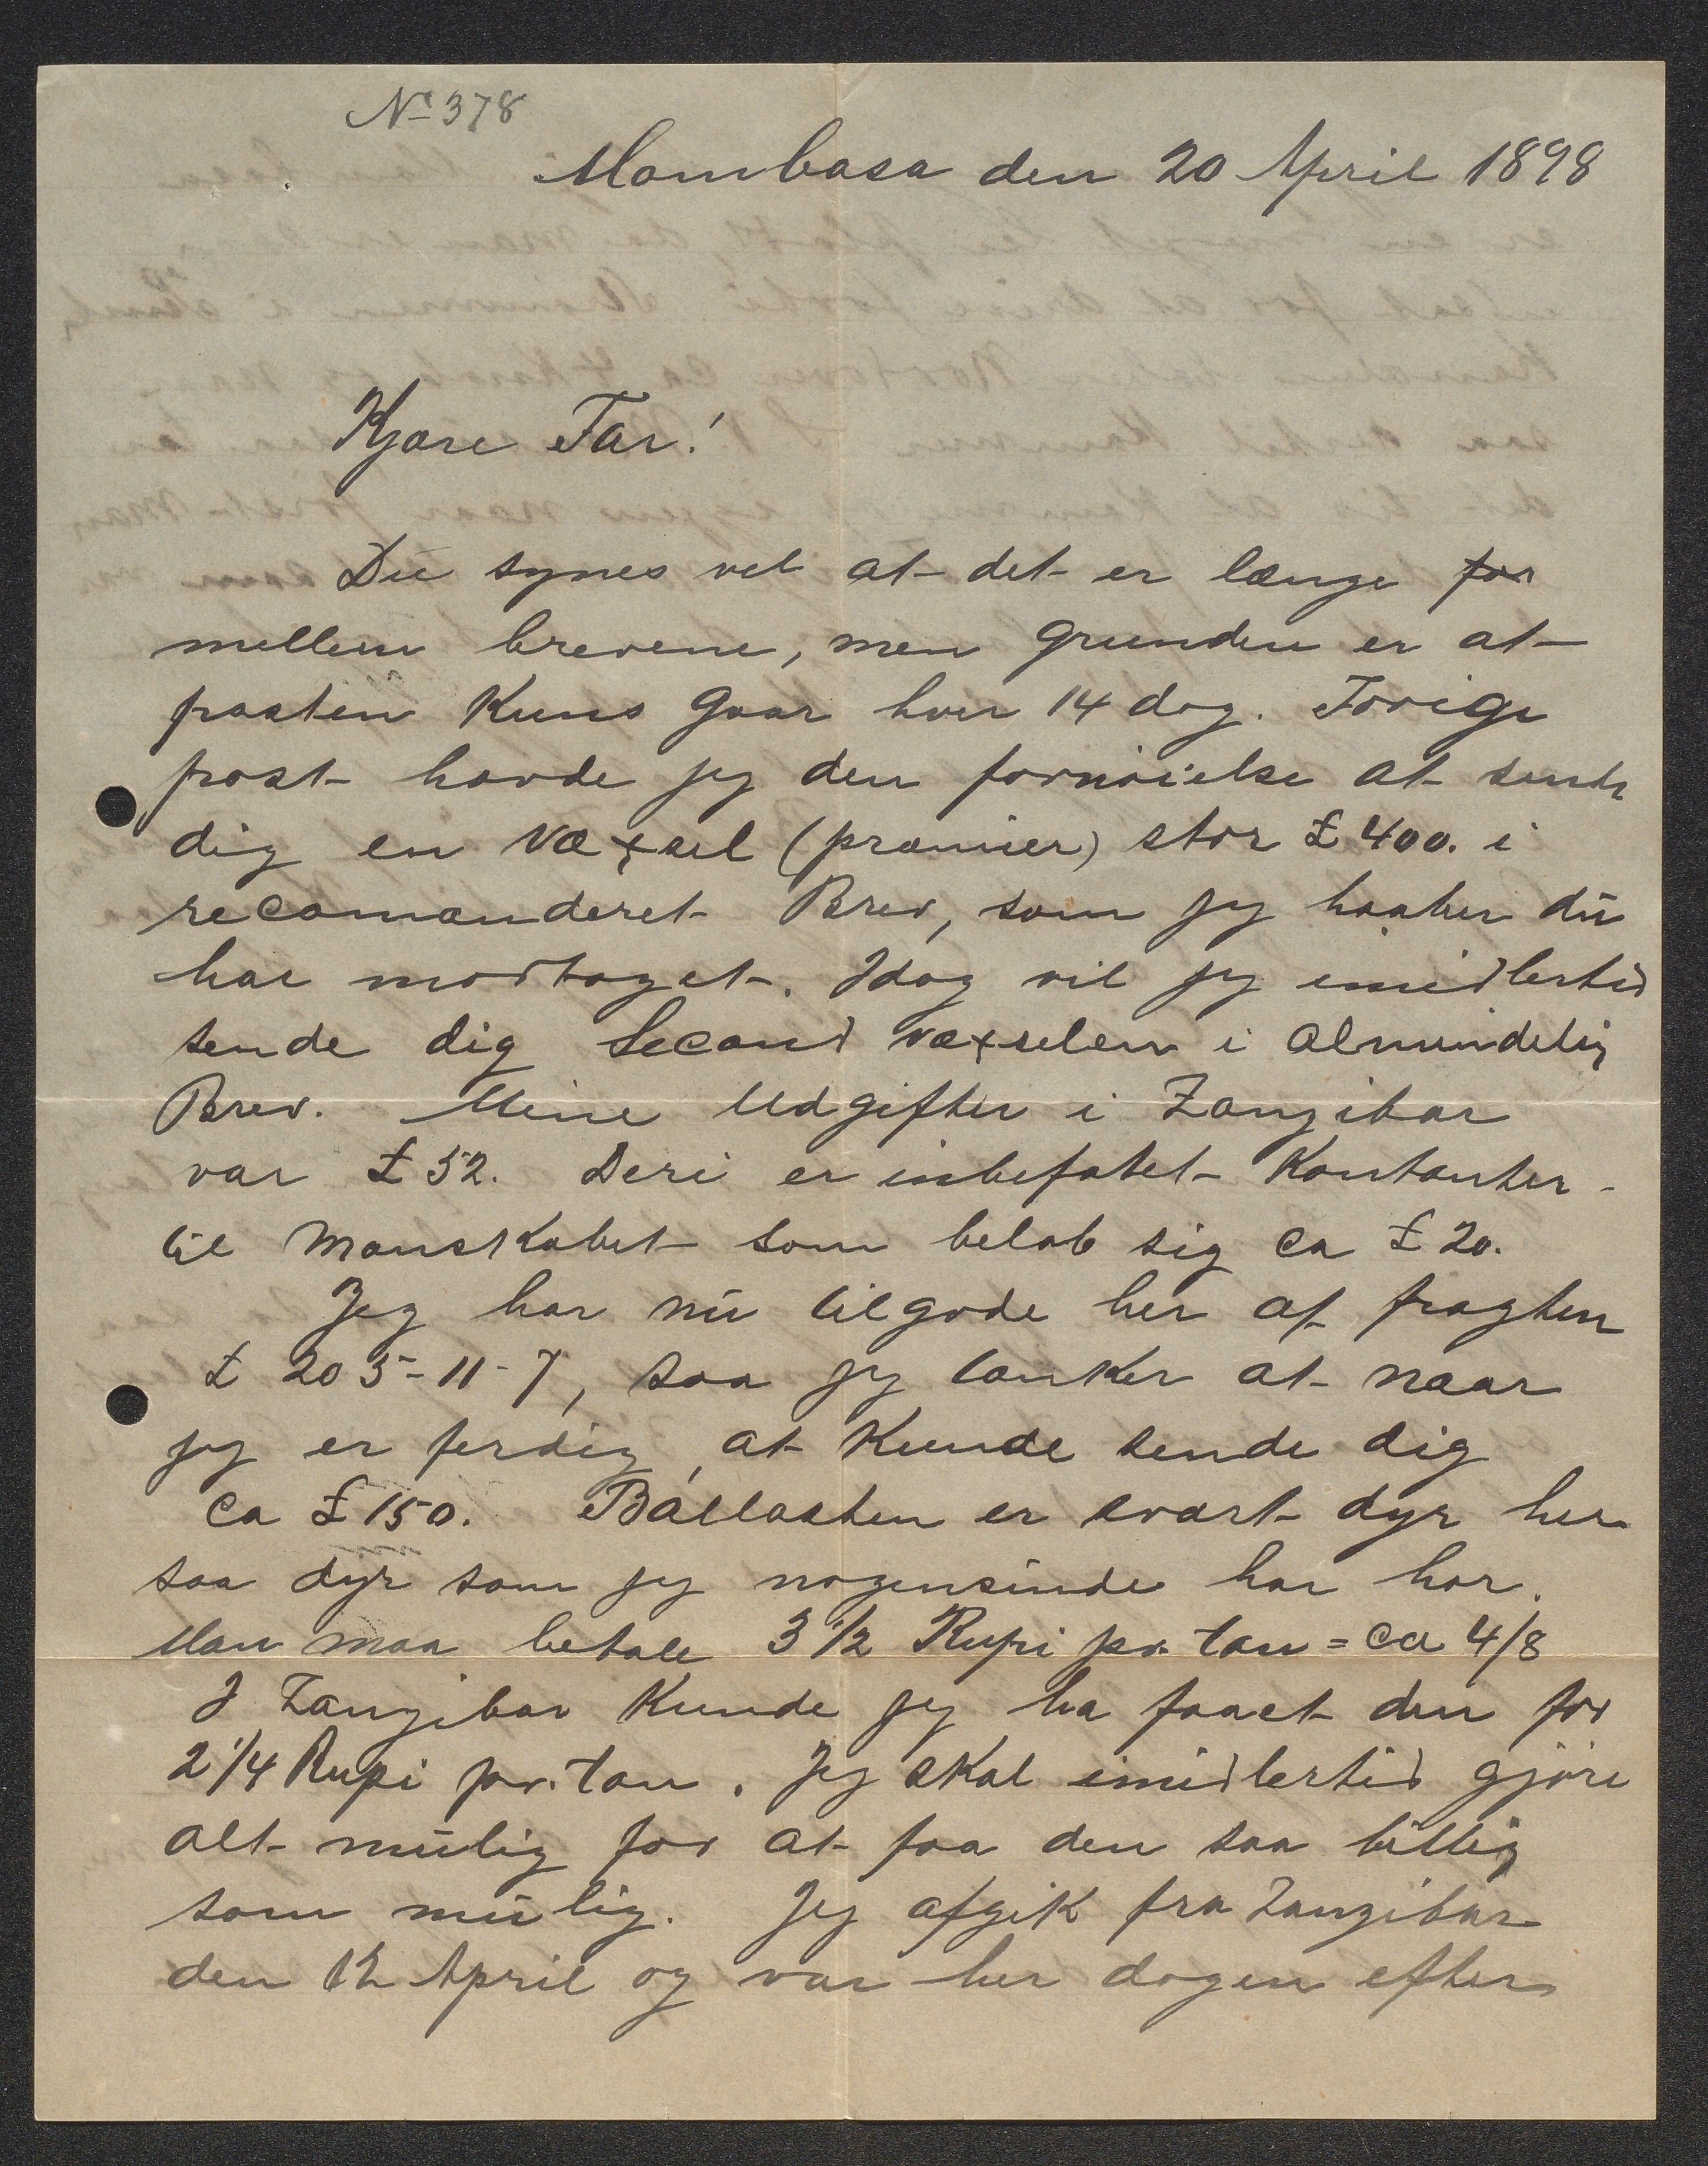 No 378
Mombasa den 20 April 1898
Kjære Far!
Du synes vel at det er længe for
mellem brevene, men grunden er at
posten kuns gaar hver 14 dag. Forige
post havde jeg den fornøielse at sende
dig en væxsel (premier) stor £ 400. i
recomanderet Brev, som jeg haaber du
har modtaget. Idag vil jeg imidlertid
sende dig Second væxselen i almindelig
Brev. Mine Udgifter i Zanzibar
var £ 52. Deri er inbefatet Kontanter
til Manskabet som beløb sig ca £ 20.
Jeg har nu tilgode her af fragten
£ 205-11-7, saa jeg tænker at naar
jeg er ferdig, at kunde sende dig
ca £ 150. Ballasten er svært dyr her
saa dyr som jeg nogensinde har hør.
Man maa betale 3 1/2 Rupi pr. ton = ca 4/8
I Zanzibar kunde jeg ha faaet den for
2 1/4 Rupi pr. ton. Jeg skal imidlertid gjøre
alt mulig for at faa den saa billig
som mulig. Jeg afgik fra Zanzibar
den 12 April og var her dagen efter